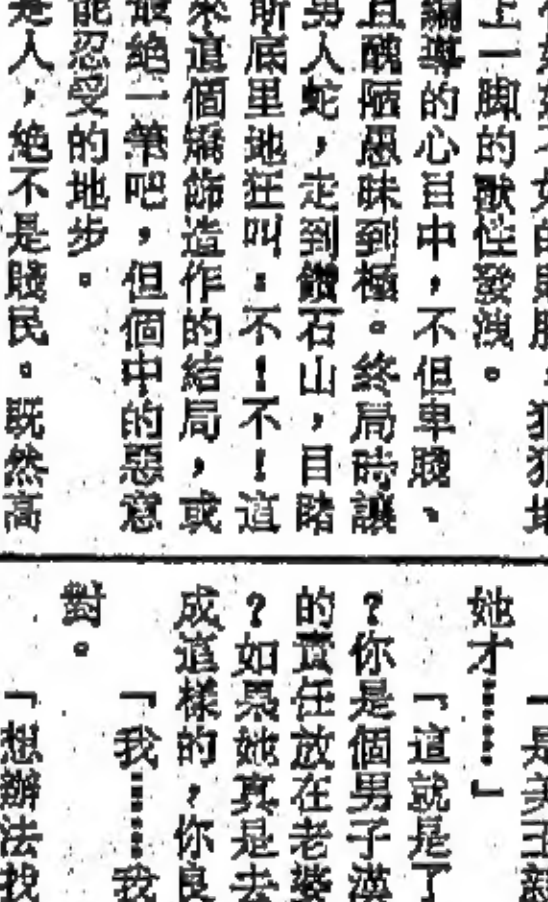 上一脚的獸性發洩。
編導的心目中，不但卑賤、
且醜陋愚昧到極。終局時讓
男人蛇，走到鑽石山，目睹
斯底里地狂叫：不！不！這
來這個矯飾造作的結局，或
最絕一筆吧，但個中的惡意
能忍受的地步。
是人，絶不是賤民。既然高
「是美玉
她才……」
「這就是了
？你是個男子漢
的責任放在老婆
？如果她真是去
成這樣的，你良
「我……我
對。
「想辦法找